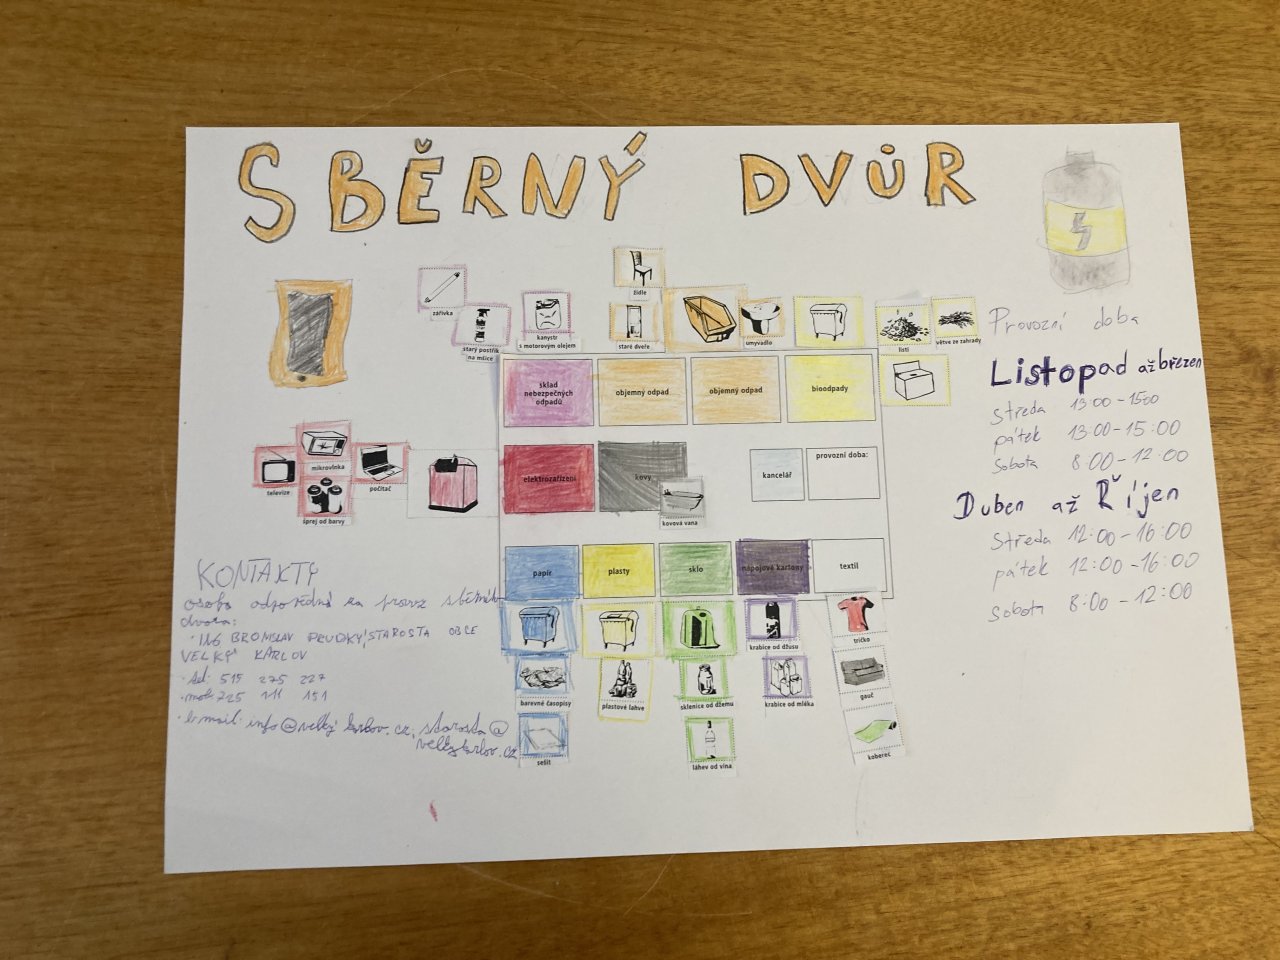 SBĚRNÝ DVŮR
židle
zářivka
starý postřik
na mšice
kanystr
s motorovým olejem
staré dveře
umyvadlo
listí
větve ze zahrady
sklad
nebezpečných
odpadů
objemný odpad
objemný odpad
bioodpady
televize
mikrovlnka
počítač
šprej od barvy
elektrozařízení
kovy
kovová vana
kancelář
provozní doba:
papír
plasty
sklo
nápojové kartony
textil
barevné časopisy
sešit
plastové lahve
sklenice od džemu
láhev od vína
krabice od džusu
krabice od mléka
tričko
gauč
koberec
Provozní doba
Listopad až březen
středa 13:00-15:00
pátek 13:00-15:00
sobota 8:00-12:00
Duben až Říjen
Středa 12:00-16:00
pátek 12:00-16:00
sobota 8:00-12:00
KONTAKTY
osoba odpovědná za provoz sběrného
dvora:
ING BRONISLAV PRUDKÝ, STAROSTA OBCE
VELKÝ KARLOV
tel: 515 275 227
mob: 725 111 151
e-mail: info@velkýkarlov.cz, starosta@
velkýkarlov.cz